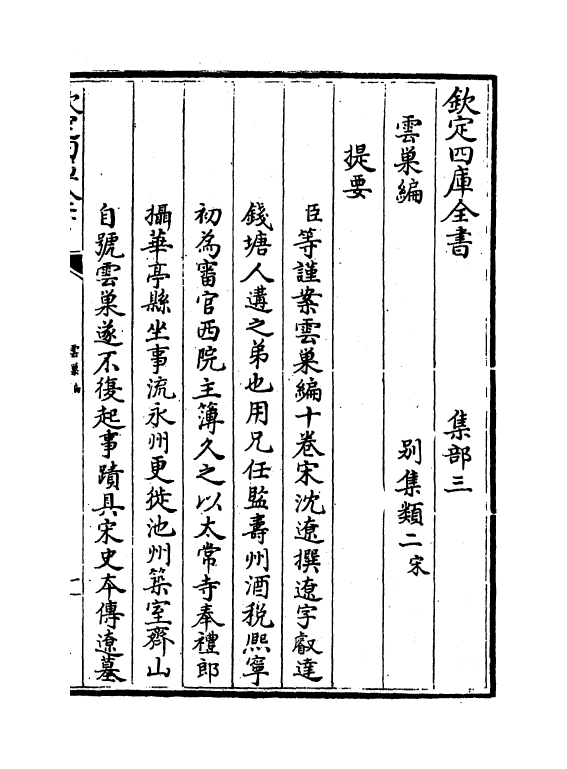 欽定四庫全書　集部三
雲巢編　别集類二宋
提要
臣等謹案雲巢編十卷宋沈遼撰遼字叡達
錢塘人遘之弟也用兄任監壽州酒税熈寧
初為審官西院主簿久之以太常寺奉禮郎
攝華亭縣坐事流永州更徙池州築室齊山
自號雲巢遂不復起事蹟具宋史本傳遼墓